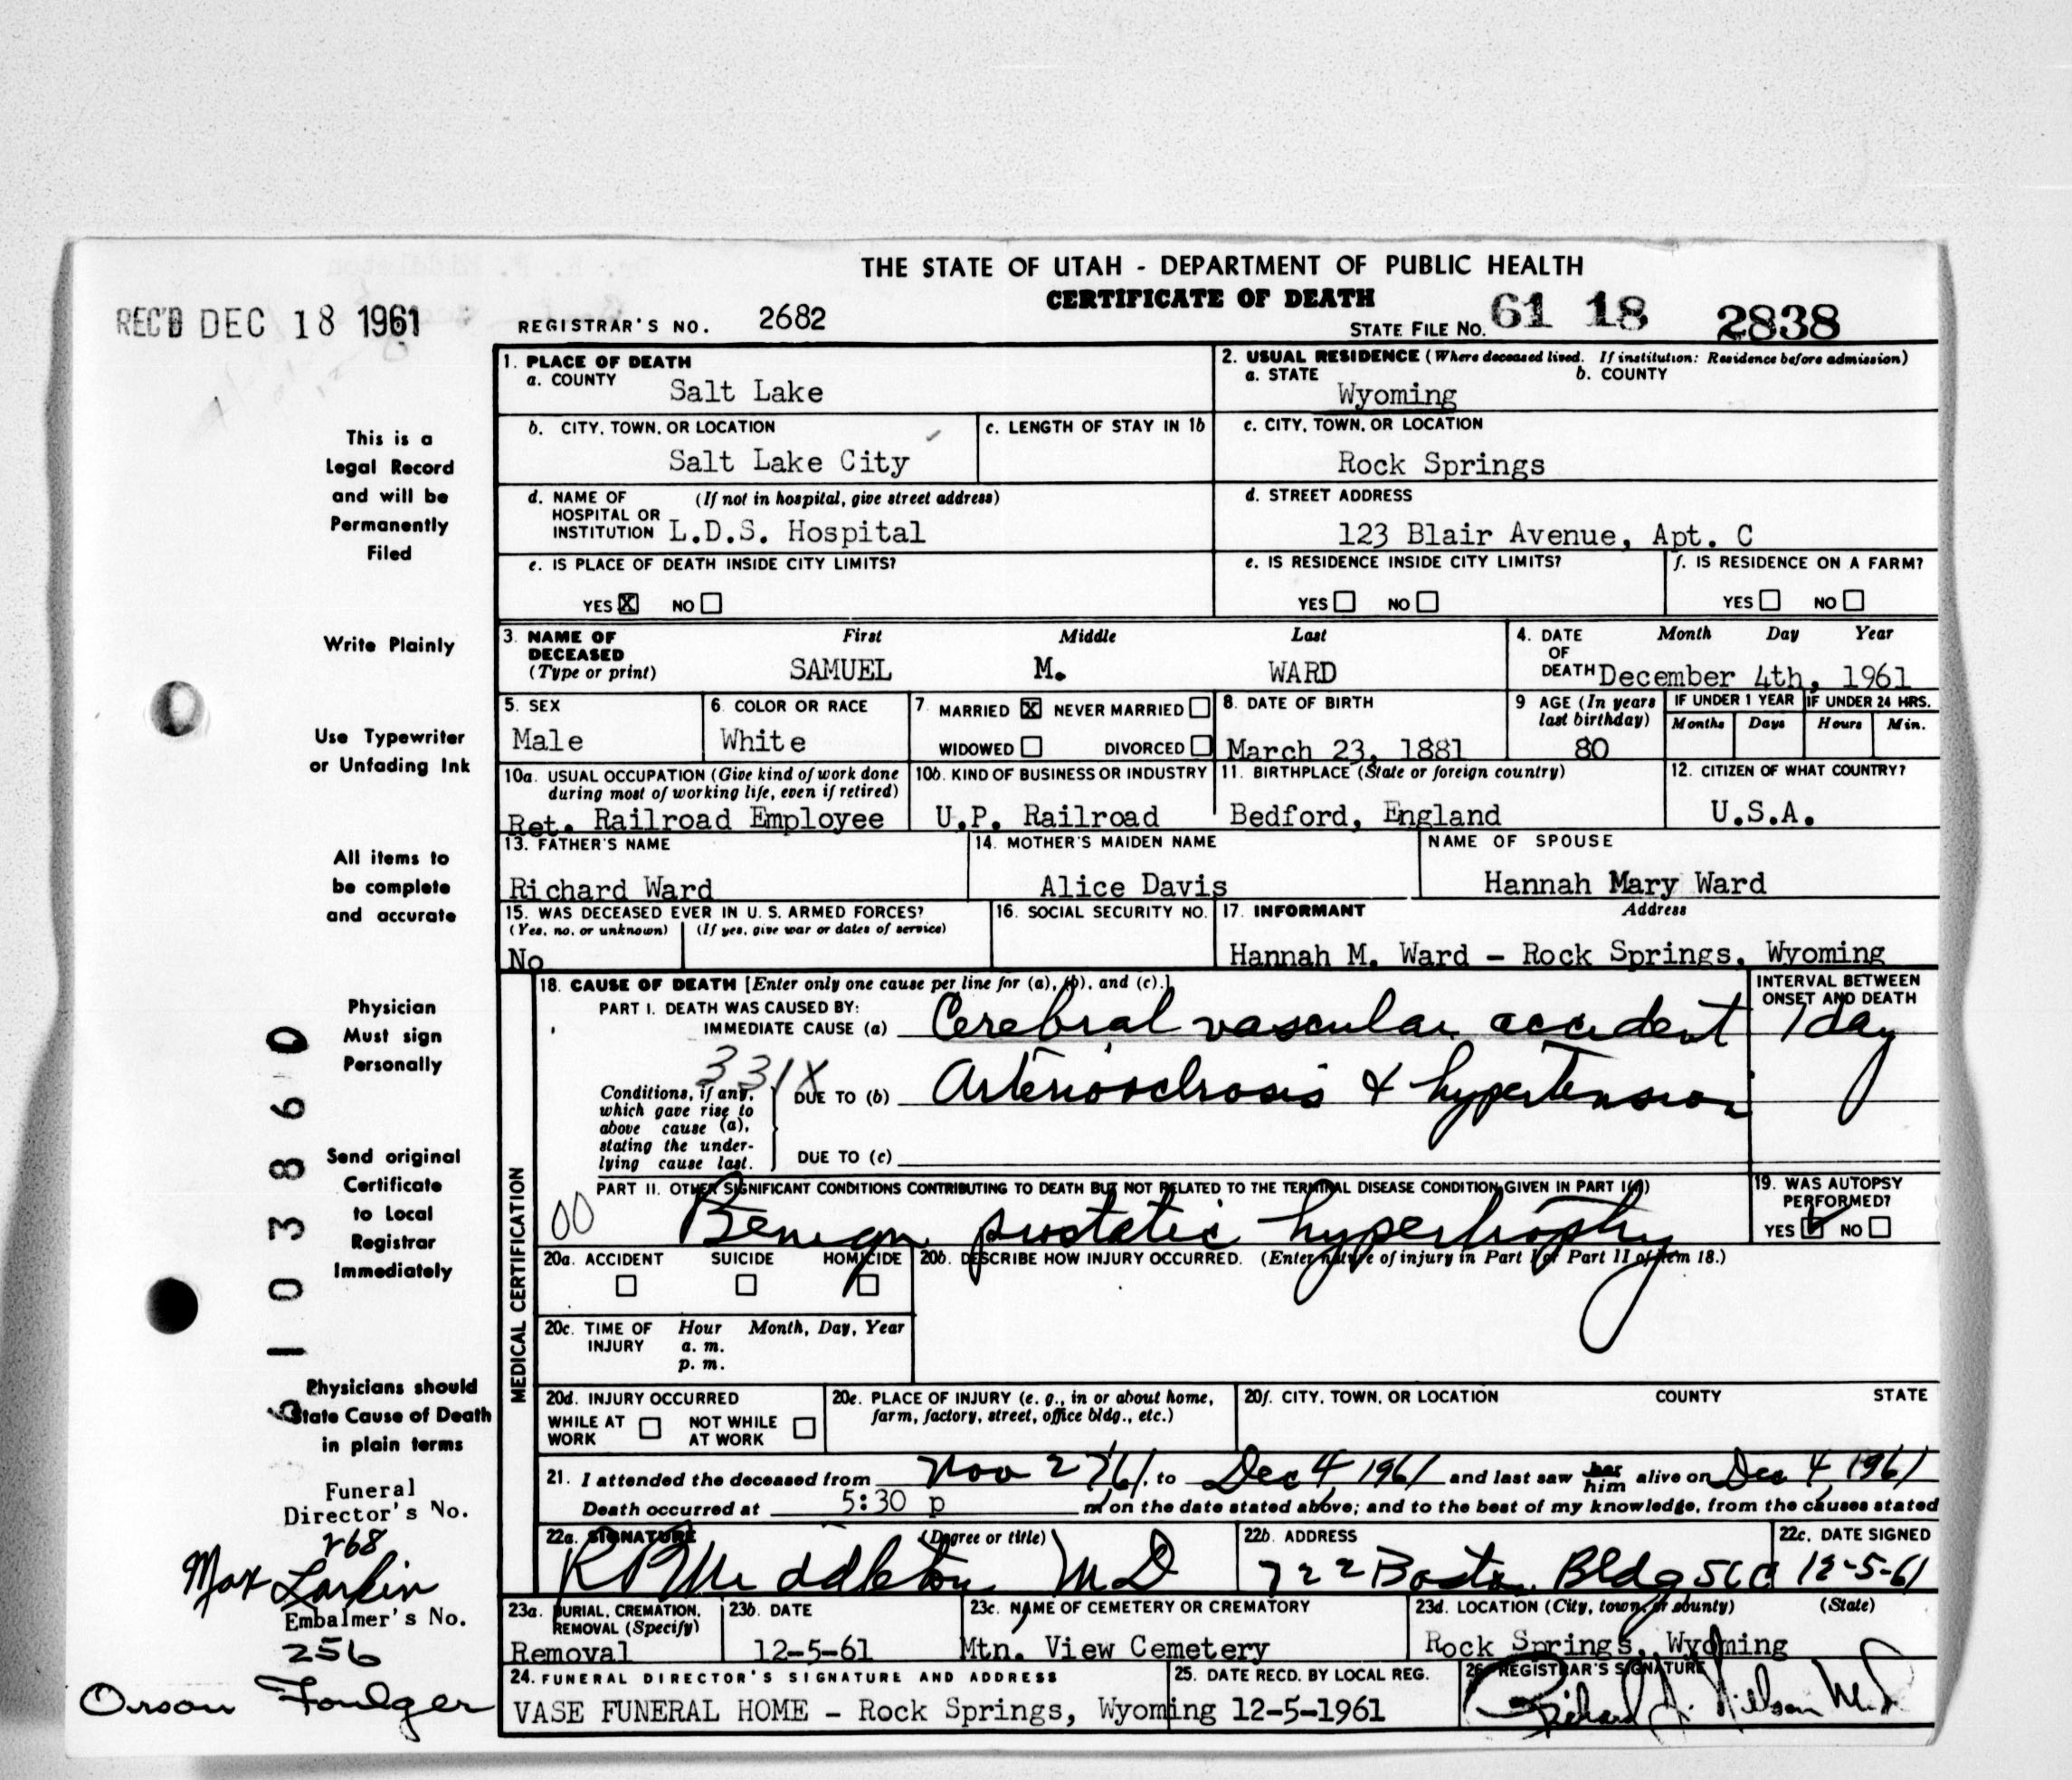 THE STATE OF UTAH - DEPARTMENT OF PUBLIC HEALTH
CERTIFICATE OF DEATH
REC'D DEC 18 1961
REGISTRAR'S NO. 2682
STATE FILE NO. 61 18 2838
1. PLACE OF DEATH
a. COUNTY Salt Lake
2. USUAL RESIDENCE (Where deceased lived. If institution: Residence before admission)
a. STATE Wyoming b. COUNTY
b. CITY, TOWN, OR LOCATION
Salt Lake City
c. LENGTH OF STAY IN 1b
c. CITY, TOWN, OR LOCATION
Rock Springs
d. NAME OF (If not in hospital, give street address)
HOSPITAL OR
INSTITUTION L.D.S. Hospital
d. STREET ADDRESS
123 Blair Avenue, Apt. C
e. IS PLACE OF DEATH INSIDE CITY LIMITS?
YES X NO
e. IS RESIDENCE INSIDE CITY LIMITS?
YES NO
f. IS RESIDENCE ON A FARM?
YES NO
3. NAME OF DECEASED (Type or print)
First Middle Last
SAMUEL M. WARD
4. DATE OF DEATH Month Day Year
December 4th, 1961
5. SEX
Male
6. COLOR OR RACE
White
7. MARRIED X NEVER MARRIED
WIDOWED DIVORCED
8. DATE OF BIRTH
March 23, 1881
9 AGE (In years last birthday)
80
IF UNDER 1 YEAR IF UNDER 24 HRS.
Months Days Hours Min.
10a. USUAL OCCUPATION (Give kind of work done
during most of working life, even if retired)
Ret. Railroad Employee
10b. KIND OF BUSINESS OR INDUSTRY
U.P. Railroad
11. BIRTHPLACE (State or foreign country)
Bedford, England
12. CITIZEN OF WHAT COUNTRY?
U.S.A.
13. FATHER'S NAME
Richard Ward
14. MOTHER'S MAIDEN NAME
Alice Davis
NAME OF SPOUSE
Hannah Mary Ward
15. WAS DECEASED EVER IN U. S. ARMED FORCES?
(Yes, no, or unknown) (If yes, give war or dates of service)
No
16. SOCIAL SECURITY NO.
17. INFORMANT Address
Hannah M. Ward - Rock Springs, Wyoming
MEDICAL CERTIFICATION
18. CAUSE OF DEATH [Enter only one cause per line for (a), (b), and (c).]
PART I. DEATH WAS CAUSED BY:
IMMEDIATE CAUSE (a) Cerebral vascular accident
INTERVAL BETWEEN
ONSET AND DEATH
1 day
331X
Conditions, if any,
which gave rise to
above cause (a),
stating the under-
lying cause last.
DUE TO (b) Arteriosclrosis & hypertension
DUE TO (c)
PART II. OTHER SIGNIFICANT CONDITIONS CONTRIBUTING TO DEATH BUT NOT RELATED TO THE TERMINAL DISEASE CONDITION GIVEN IN PART I(a)
00 Benign prostatic hypertrophy
19. WAS AUTOPSY
PERFORMED?
YES NO
20a. ACCIDENT SUICIDE HOMICIDE
20b. DESCRIBE HOW INJURY OCCURRED. (Enter nature of injury in Part I or Part II of item 18.)
20c. TIME OF INJURY Hour Month, Day, Year
a. m.
p. m.
20d. INJURY OCCURRED
WHILE AT WORK NOT WHILE AT WORK
20e. PLACE OF INJURY (e. g., in or about home,
farm, factory, street, office bldg., etc.)
20f. CITY, TOWN, OR LOCATION COUNTY STATE
21. I attended the deceased from Nov 27 61, to Dec 4 1961 and last saw her him alive on Dec 4 1961
Death occurred at 5:30 p m on the date stated above; and to the best of my knowledge, from the causes stated
22a. SIGNATURE (Degree or title)
R P Middleton MD
22b. ADDRESS
722 Boston Bldg SLC
22c. DATE SIGNED
12-5-61
23a. BURIAL, CREMATION,
REMOVAL (Specify)
Removal
23b. DATE
12-5-61
23c. NAME OF CEMETERY OR CREMATORY
Mtn. View Cemetery
23d. LOCATION (City, town, or county) (State)
Rock Springs, Wyoming
24. FUNERAL DIRECTOR'S SIGNATURE AND ADDRESS
VASE FUNERAL HOME - Rock Springs, Wyoming
25. DATE RECD. BY LOCAL REG.
12-5-1961
26. REGISTRAR'S SIGNATURE
Richard A. Nielson M.D.
This is a
Legal Record
and will be
Permanently
Filed
Write Plainly
Use Typewriter
or Unfading Ink
All items to
be complete
and accurate
Physician
Must sign
Personally
Send original
Certificate
to Local
Registrar
Immediately
Physicians should
State Cause of Death
in plain terms
Funeral
Director's No.
268
Max Larkin
Embalmer's No.
256
Orson Foulger